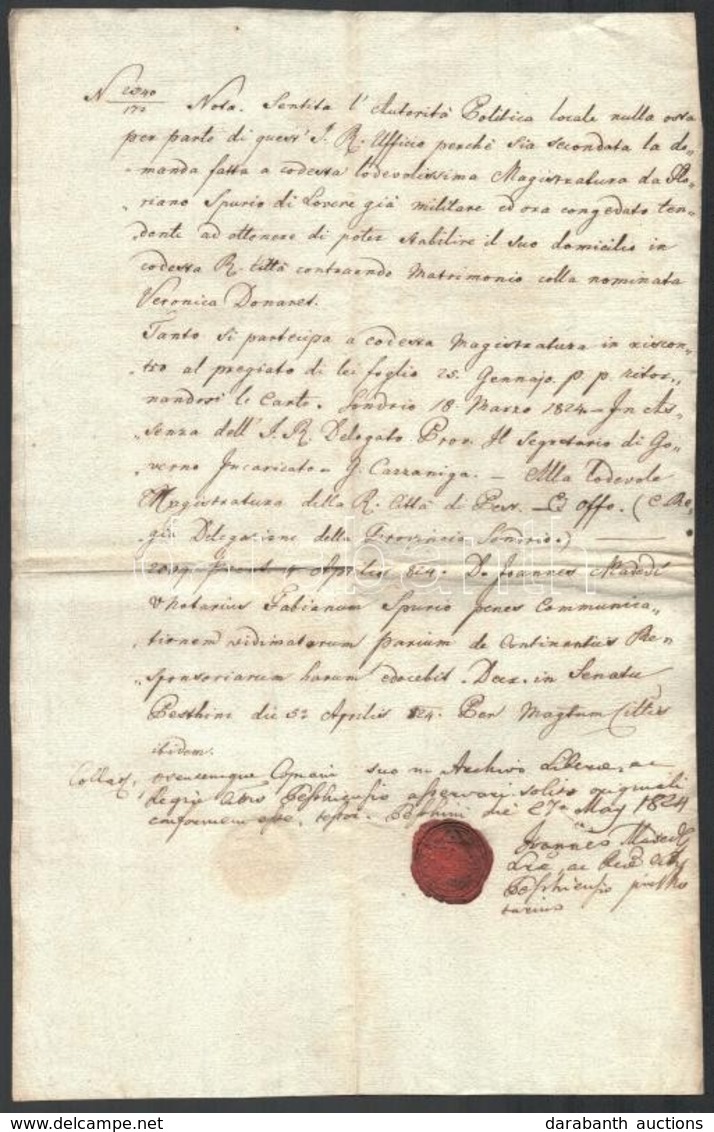 N 2340/170 Nota. Sentita l'Autorità Politica locale nulla osta
per parte di quest' I. R. Ufficio perchè sia secondata la do„
„manda fatta a codessa lodevolissima Magistratura da Flo„
„riano Spurio di Lovere già militare ed ora congedato ten„
„dente ad ottenere di poter stabilire il suo domicilio in
codessa R. Città contraendo Matrimonio colla nominata
Veronica Donaret.
Tanto si partecipa a codessa Magistratura in riscon„
„tro al pregiato di lei foglio 25. Gennajo. p. p. ritor„
„nandosi le Carte. Sondrio 18. Marzo 1824. – In As„
„senza dell' I. R. Delegato Prov. Il Segretario di Go„
„verno Incaricato – G. Cazzaniga. – Alla Lodevole
Magistratura della R. Città di Pest. – Ex offo. (C. Re„
„gia Delegazione della Provincia Sondrio.) –
Aprilis 824. D. Joannes
Vnotarius Fabianum Spurio penes Communica„
„tionem vidimatarum parium de Continentiis Re„
„sponsoriarum harum edocebit. Dec. in Senatu
Pesthini die 5a Aprilis 824. Per Magtum Cittis
ibidem.
Copiam suo in Archivo Liberae, ac
Regiae Pesthiensis asservari solito originali
conformem esse, testor. Pesthini die 27a May 1824
Joannes
Lrae, ac Regae
Pesthiensis
tarius
darabanth
darabanth auctions